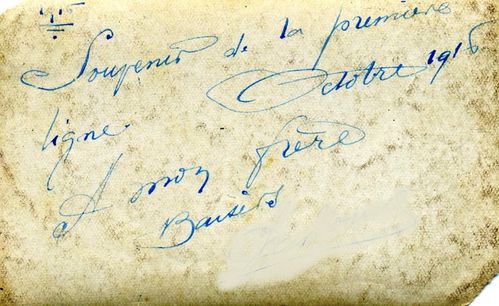 Souvenir de la première
ligne. Octobre 1915
A mon frère
Baisers